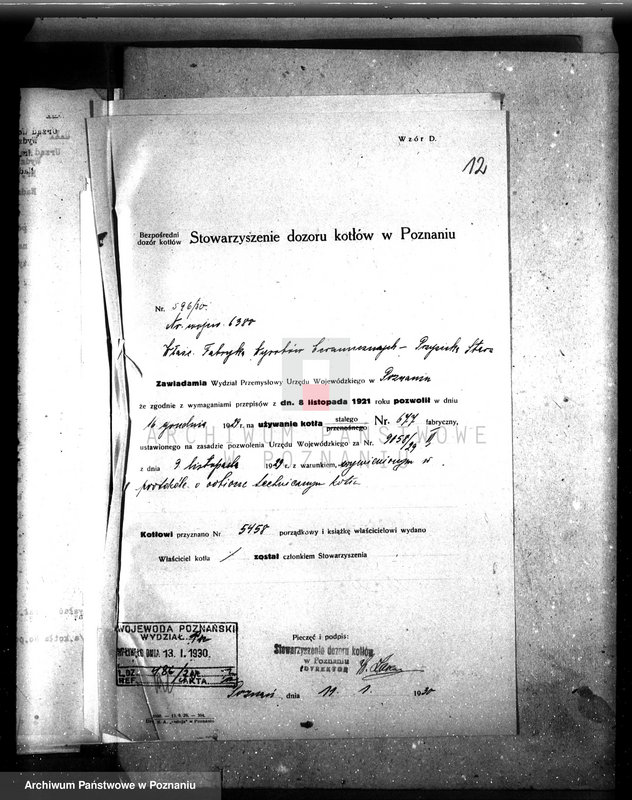 Wzór D.
12
Bezpośredni
dozór kotłów
Stowarzyszenie dozoru kotłów w Poznaniu
Nr. 596/30.
Nr. wojew. 6300
Właśc. Fabryka Wyrobów Ceramicznych - Przysieka Stara
Zawiadamia Wydział Przemysłowy Urzędu Wojewódzkiego w Poznaniu
że zgodnie z wymaganiami przepisów z dn. 8 listopada 1921 roku pozwolił w dniu
16 grudnia 1929 r. na używanie kotła stałego przenośnego Nr. 677 fabryczny,
ustanowionego na zasadzie pozwolenia Urzędu Wojewódzkiego za Nr. 9150/29 II
z dnia 9 listopada 1929 r. z warunkiem, wymienionym w
protokóle o odbiorze technicznym kotła
Kotłowi przyznano Nr 5458 porządkowy i książkę właścicielowi wydano
Właściciel kotła / został członkiem Stowarzyszenia
WOJEWODA POZNAŃSKI
WYDZIAŁ
DNIA 13. I. 1930.
L. DZ. 486/
REF. KARTA.
Pieczęć i podpis:
Stowarzyszenie dozoru kotłów
w Poznaniu
DYREKTOR
Poznań, dnia 11. 1. 1930
ARCHIWUM PAŃSTWOWE
W POZNANIU
Archiwum Państwowe w Poznaniu